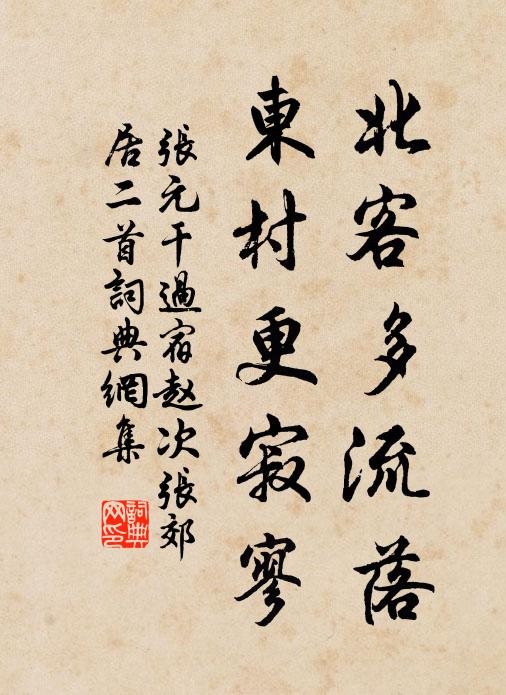 北客多流落
東村更寂寥
張元干過宿赵次張郊
居二首詞典網集
詞典网印